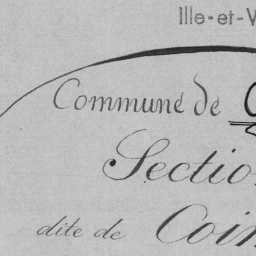 Ille-et-V
Commune de
Sectio
dite de Coin